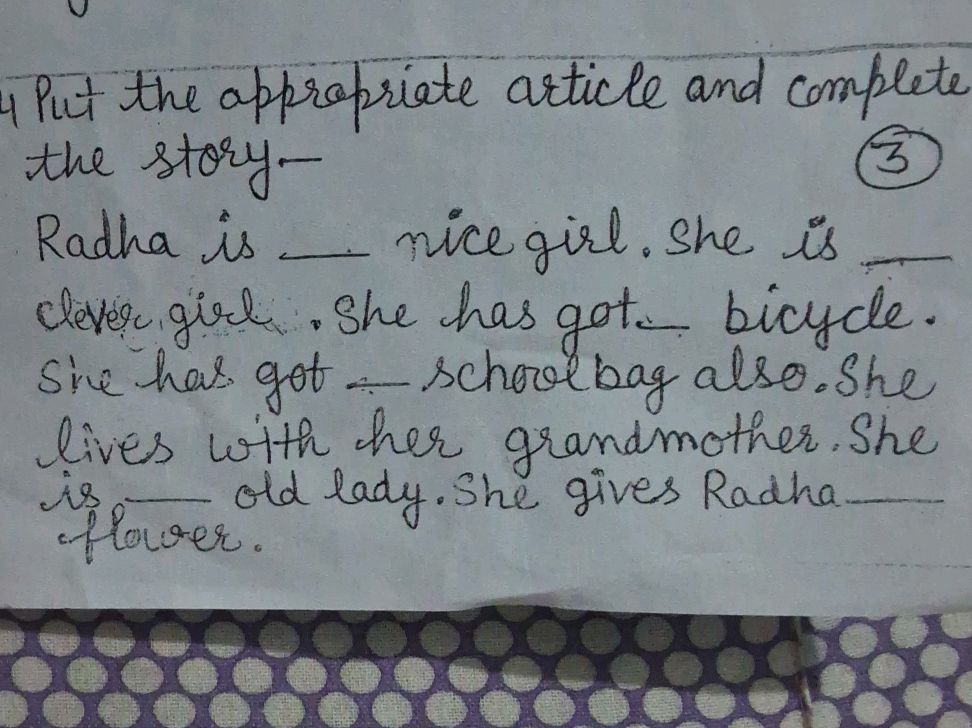 4 Put the appropriate article and complete
the story.—
3
Radha is ___ nice girl. She is ___
clever girl. She has got ___ bicycle.
She has got ___ school bag also. She
lives with her grandmother. She
is ___ old lady. She gives Radha ___
flower.